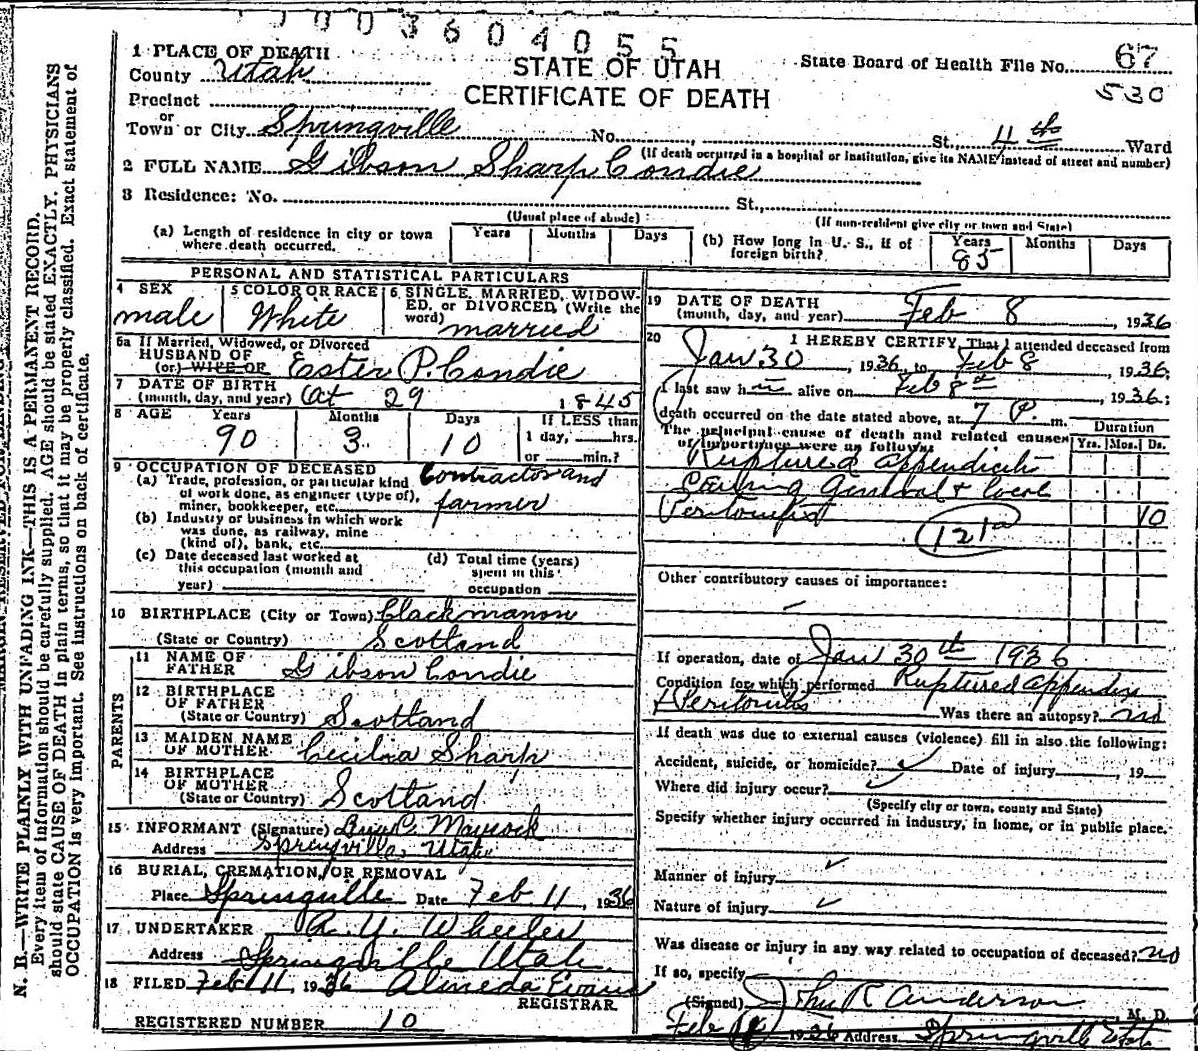 003604055
1 PLACE OF DEATH
County Utah
STATE OF UTAH
CERTIFICATE OF DEATH
State Board of Health File No. 67
530
Precinct
or
Town or City Springville No. St., 4th Ward
(If death occurred in a hospital or institution, give its NAME instead of street and number)
2 FULL NAME Gibson Sharp Condie
3 Residence: No. St.,
(Usual place of abode) (If non-resident give city or town and State)
(a) Length of residence in city or town where death occurred. Years Months Days
(b) How long in U. S., if of foreign birth? Years 85 Months Days
PERSONAL AND STATISTICAL PARTICULARS
4 SEX male
5 COLOR OR RACE White
6 SINGLE, MARRIED, WIDOWED, or DIVORCED, (Write the word) married
6a If Married, Widowed, or Divorced
HUSBAND OF
(or) WIFE OF Ester P. Condie
7 DATE OF BIRTH
(month, day, and year) Oct 29 1845
8 AGE Years 90 Months 3 Days 10
If LESS than 1 day, hrs. or min.?
9 OCCUPATION OF DECEASED
(a) Trade, profession, or particular kind of work done, as engineer (type of), miner, bookkeeper, etc. Contractor and farmer
(b) Industry or business in which work was done, as railway, mine (kind of), bank, etc.
(c) Date deceased last worked at this occupation (month and year)
(d) Total time (years) spent in this occupation
10 BIRTHPLACE (City or Town) Clackmanon
(State or Country) Scotland
PARENTS
11 NAME OF FATHER Gibson Condie
12 BIRTHPLACE OF FATHER (State or Country) Scotland
13 MAIDEN NAME OF MOTHER Cecilia Sharp
14 BIRTHPLACE OF MOTHER (State or Country) Scotland
15 INFORMANT (Signature) Maycock
Address Springville, Utah
16 BURIAL, CREMATION, OR REMOVAL
Place Springville Date Feb 11, 1936
17 UNDERTAKER A. Y. Wheeler
Address Springville Utah
18 FILED Feb 11, 1936 Almeda Evans
REGISTRAR
REGISTERED NUMBER 10
19 DATE OF DEATH
(month, day, and year) Feb 8, 1936
20 I HEREBY CERTIFY, That I attended deceased from
Jan 30, 1936, to Feb 8, 1936;
I last saw him alive on Feb 8th, 1936;
death occurred on the date stated above, at 7 P. m.
The principal cause of death and related causes of importance were as follows:
Duration
Yrs. Mos. Ds.
Ruptured appendicitis
general & local
Peritonitis 10
121a
Other contributory causes of importance:
If operation, date of Jan 30th 1936
Condition for which performed Ruptured appendix
& Peritonitis Was there an autopsy? no
If death was due to external causes (violence) fill in also the following:
Accident, suicide, or homicide? Date of injury , 19
Where did injury occur?
(Specify city or town, county and State)
Specify whether injury occurred in industry, in home, or in public place.
Manner of injury
Nature of injury
Was disease or injury in any way related to occupation of deceased? no
If so, specify
(Signed) John R Anderson
M. D.
Feb 1936 Address Springville Utah
MARGIN RESERVED FOR BINDING
N. B.—WRITE PLAINLY WITH UNFADING INK—THIS IS A PERMANENT RECORD.
Every item of information should be carefully supplied. AGE should be stated EXACTLY. PHYSICIANS
should state CAUSE OF DEATH in plain terms, so that it may be properly classified. Exact statement of
OCCUPATION is very important. See instructions on back of certificate.